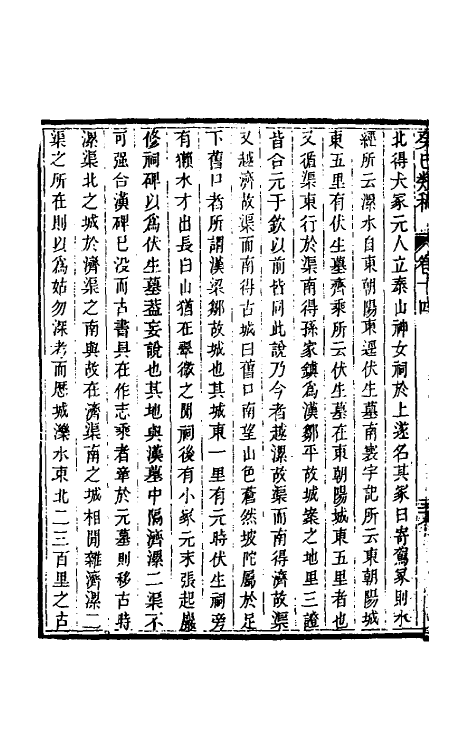 癸巳類稿　卷十四
北得大冢元人立泰山神女祠於上遂名其冢曰寄駕冢則水
經所云漯水自東朝陽東逕伏生墓南寰宇記所云東朝陽城
東五里有伏生墓齊乘所云伏生墓在東朝陽城東五里者也
又循渠東行於渠南得孫家鎮為漢鄒平故城案之地里三證
皆合元于欽以前皆同此說乃今者越漯故渠而南得濟故渠
又越濟故渠而南得古城曰舊口南望山色蒼然坡陀屬於足
下舊口者所謂漢梁鄒故城也其城東一里有元時伏生祠旁
有獺水才出長白山猶在舉徵之閒祠後有小冢元末張起巖
修祠碑以為伏生墓葢妄說也其地與漢墓中隔濟漯二渠不
可强合漢碑已没而古書具在作志乘者牽於元墓則移古時
漯渠北之城於濟渠之南與故在濟渠南之城相閒雜濟漯二
渠之所在則以為姑勿深考而歷城濼水東北二三百里之古